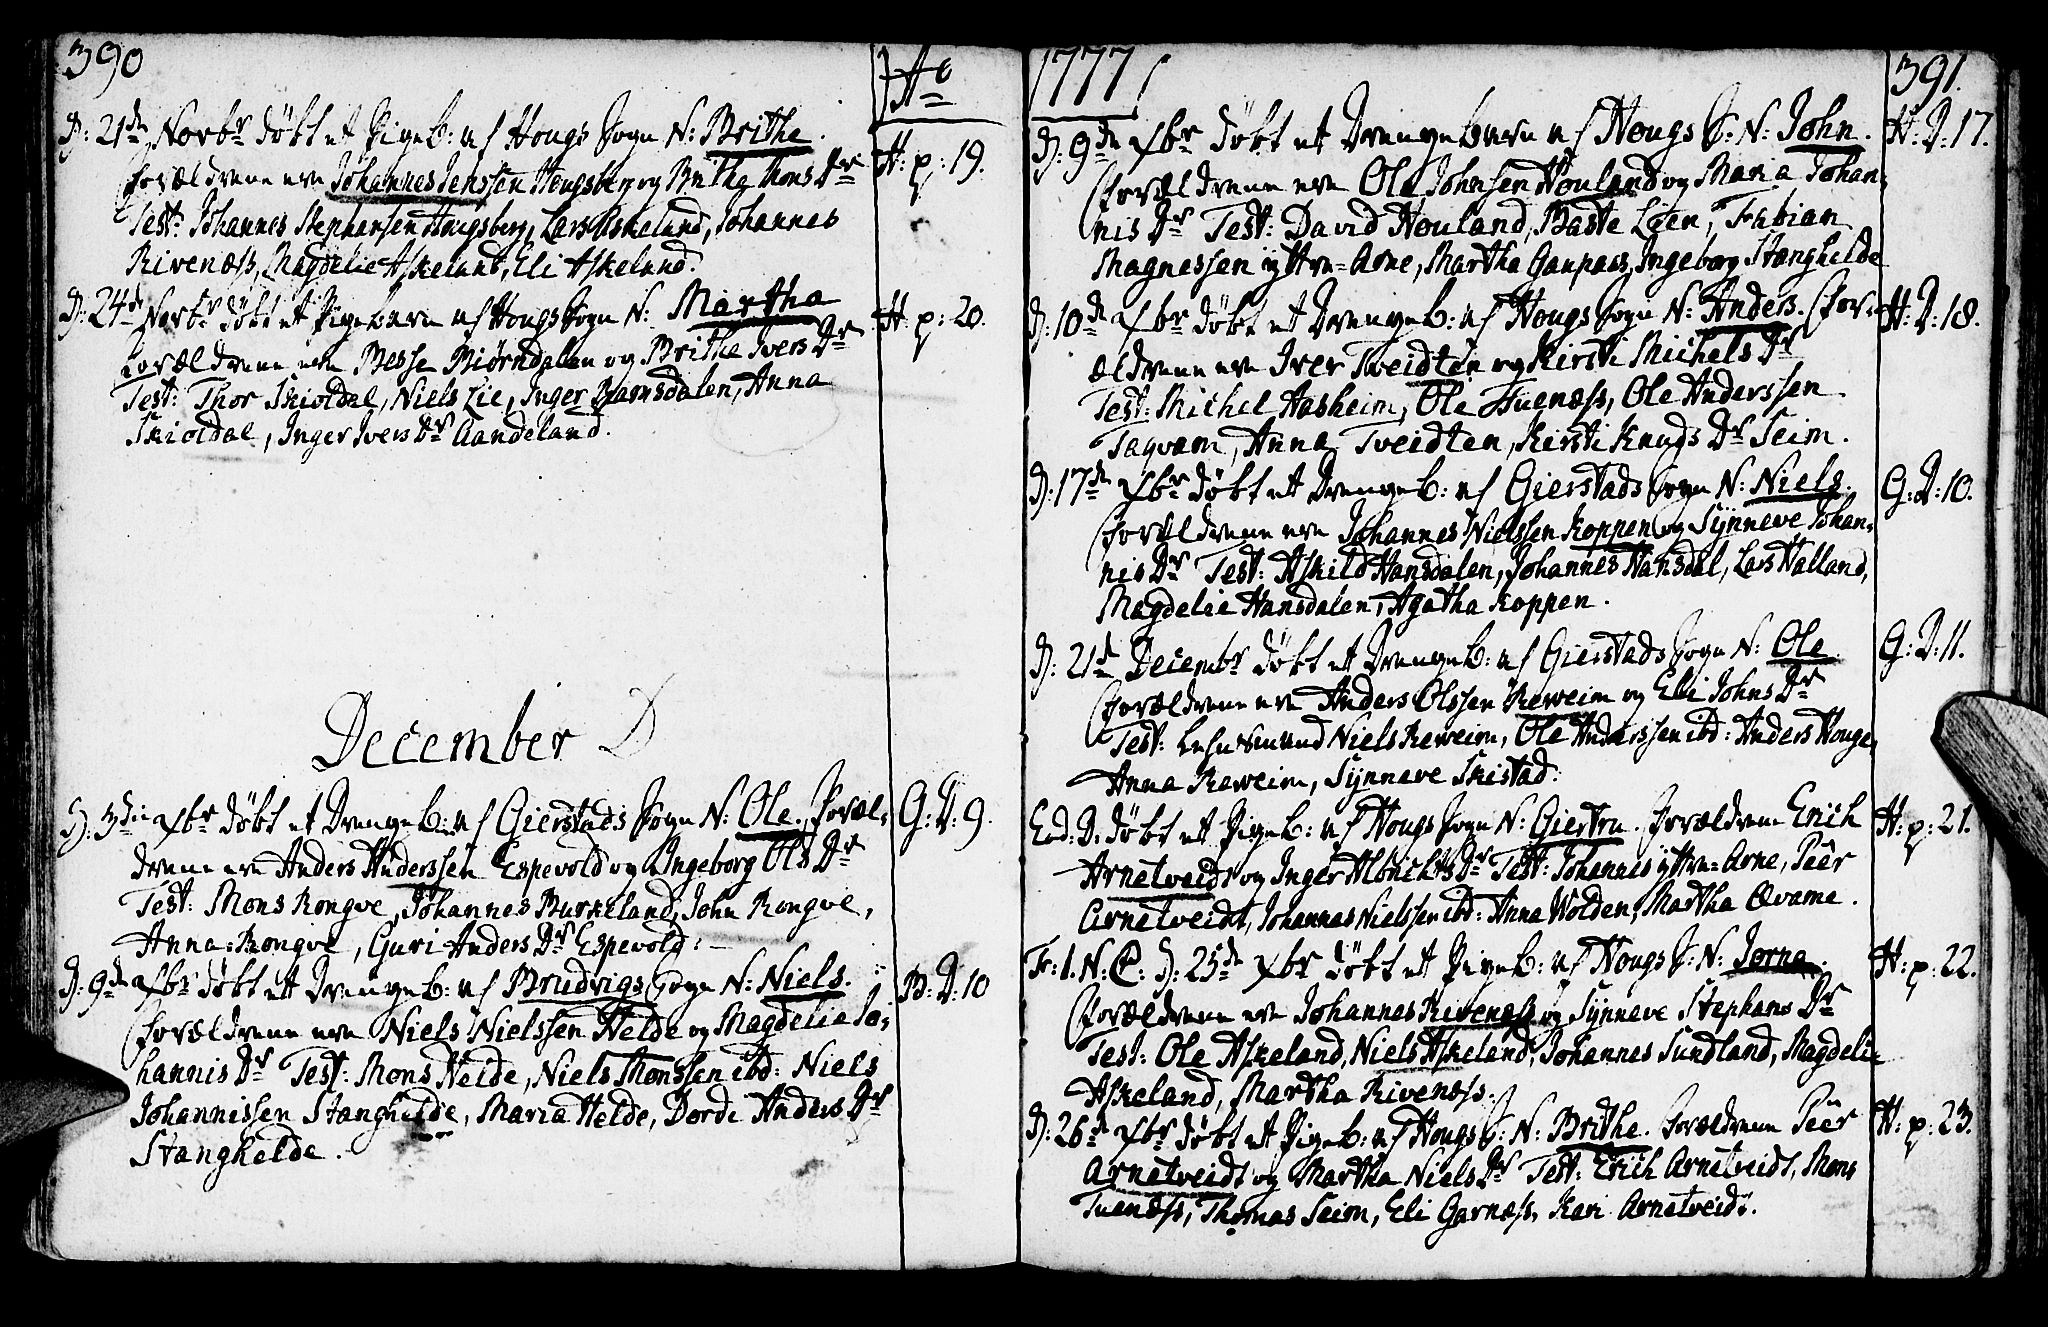 390
Ao
D: 21de Novbr døbt et Pigeb: af Hougs Sogn N: Brithe.
H: p: 19.
Forældrene ere Johannes Jenssen Hougsberg og Brithe Mons Dr
Test: Johannes Stephansen Hougsberg, Lars Askelund, Johannes
Rivenæss, Magdelie Askelund, Eli Askelund.
D: 24de Novbr døbt et Pigebarn af Hougs Sogn N: Martha
H: p: 20.
Forældrene ere Besse Biørndalen og Brithe Ivers Dr
Test: Thor Skioldal, Niels Lie, Inger Bjørnsdalen, Anna
Skioldal, Inger Ivers Dr Aandeland.
December
D: 3die xbr døbt et Drengeb: af Gierstads Sogn N: Ole. Foræl-
G: D: 9.
drene ere Anders Anderssen Espevold og Ingeborg Ols Dr
Test: Mons Rongve, Johannes Burkeland, John Rongve,
Anna Rongve, Guri Anders Dr Espevold.
D: 9de xbr døbt et Drengeb: af Brudvigs Sogn N: Niels.
B: D: 10
Forældrene ere Niels Nielssen Helde og Magdelia Jo-
hannis Dr Test: Mons Helde, Niels Monssen ibd: Niels
Johannissen Stanghelde, Maria Helde, Dorde Anders Dr
Stanghelde.
1777
391.
D: 9de xbr døbt et Drengebarn af Hougs S: N: John.
H: D: 17.
Forældrene ere Ole Johnsen Houland og Maria Johan-
nis Dr Test: David Houland, Baste Leen, Fabian
Magnessen yttre=Arne, Martha Gaupaas, Ingeborg Stanghelde
D: 10de xbr døbt et Drengeb: af Hougs Sogn N: Anders. For-
H: D: 18.
ældrene ere Iver Tveidten og Kirsti Michels Dr
Test: Michel Aasheim, Ole Tuenæss, Ole Anderssen
Taqvam, Anna Tveidten, Kirsti Knuds Dr Seim.
D: 17de xbr døbt et Drengeb: af Gierstads Sogn N: Niels.
G: D: 10.
Forældrene ere Johannes Nielssen Koppen og Synneve Johan-
nis Dr Test: Askild Hansdalen, Johannes Hansdal, Lars Halland,
Magdelie Hansdalen, Agatha Koppen.
D: 21de Decembr døbt et Drengeb: af Gierstads Sogn N: Ole.
G: D: 11.
Forældrene ere Anders Olssen Reweim og Eli Johns Dr
Test: Lehnsmand Niels Reweim, Ole Anderssen ibd: Anders Houge,
Anna Reweim, Synneve Skistad.
Eod: D. døbt et Pigeb: af Hougs Sogn N: Giertru. Forældrene Erich
H: p: 21.
Arnetveidt og Inger Albrichts Dr Test: Johannes yttre=Arne, Peër
Arnetveidt, Johannes Nielssen ibd: Anna Wolden, Martha Qvame.
Fr: 1. N: C: D: 25de xbr døbt et Pigeb: af Hougs S: N: Jorna.
H: p: 22.
Forældrene ere Johannes Rivenæss og Synneve Stephans Dr
Test: Ole Askeland, Niels Askeland, Johannes Sundland, Magdeli
Askeland, Martha Rivenæss.
D: 26de xbr døbt et Pigeb: af Hougs S: N: Brithe. Forældrene Peër
H: p: 23.
Arnetveidt og Martha Niels Dr Test: Erich Arnetveidt, Mons
Tuenæss, Thomas Seim, Eli Garnæss, Kari Arnetveidt.